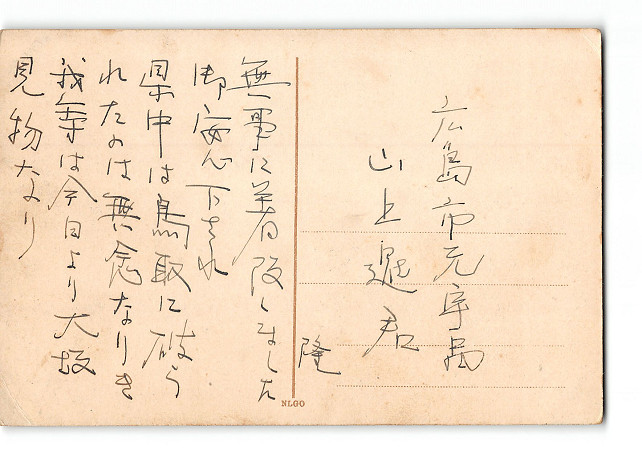 広島市元宇品
山上進君
隆
無事に着阪しました
御安心下され
県中は鳥取に破ら
れたのは無念なりき
我等は今日より大坂
見物なり
NLGO